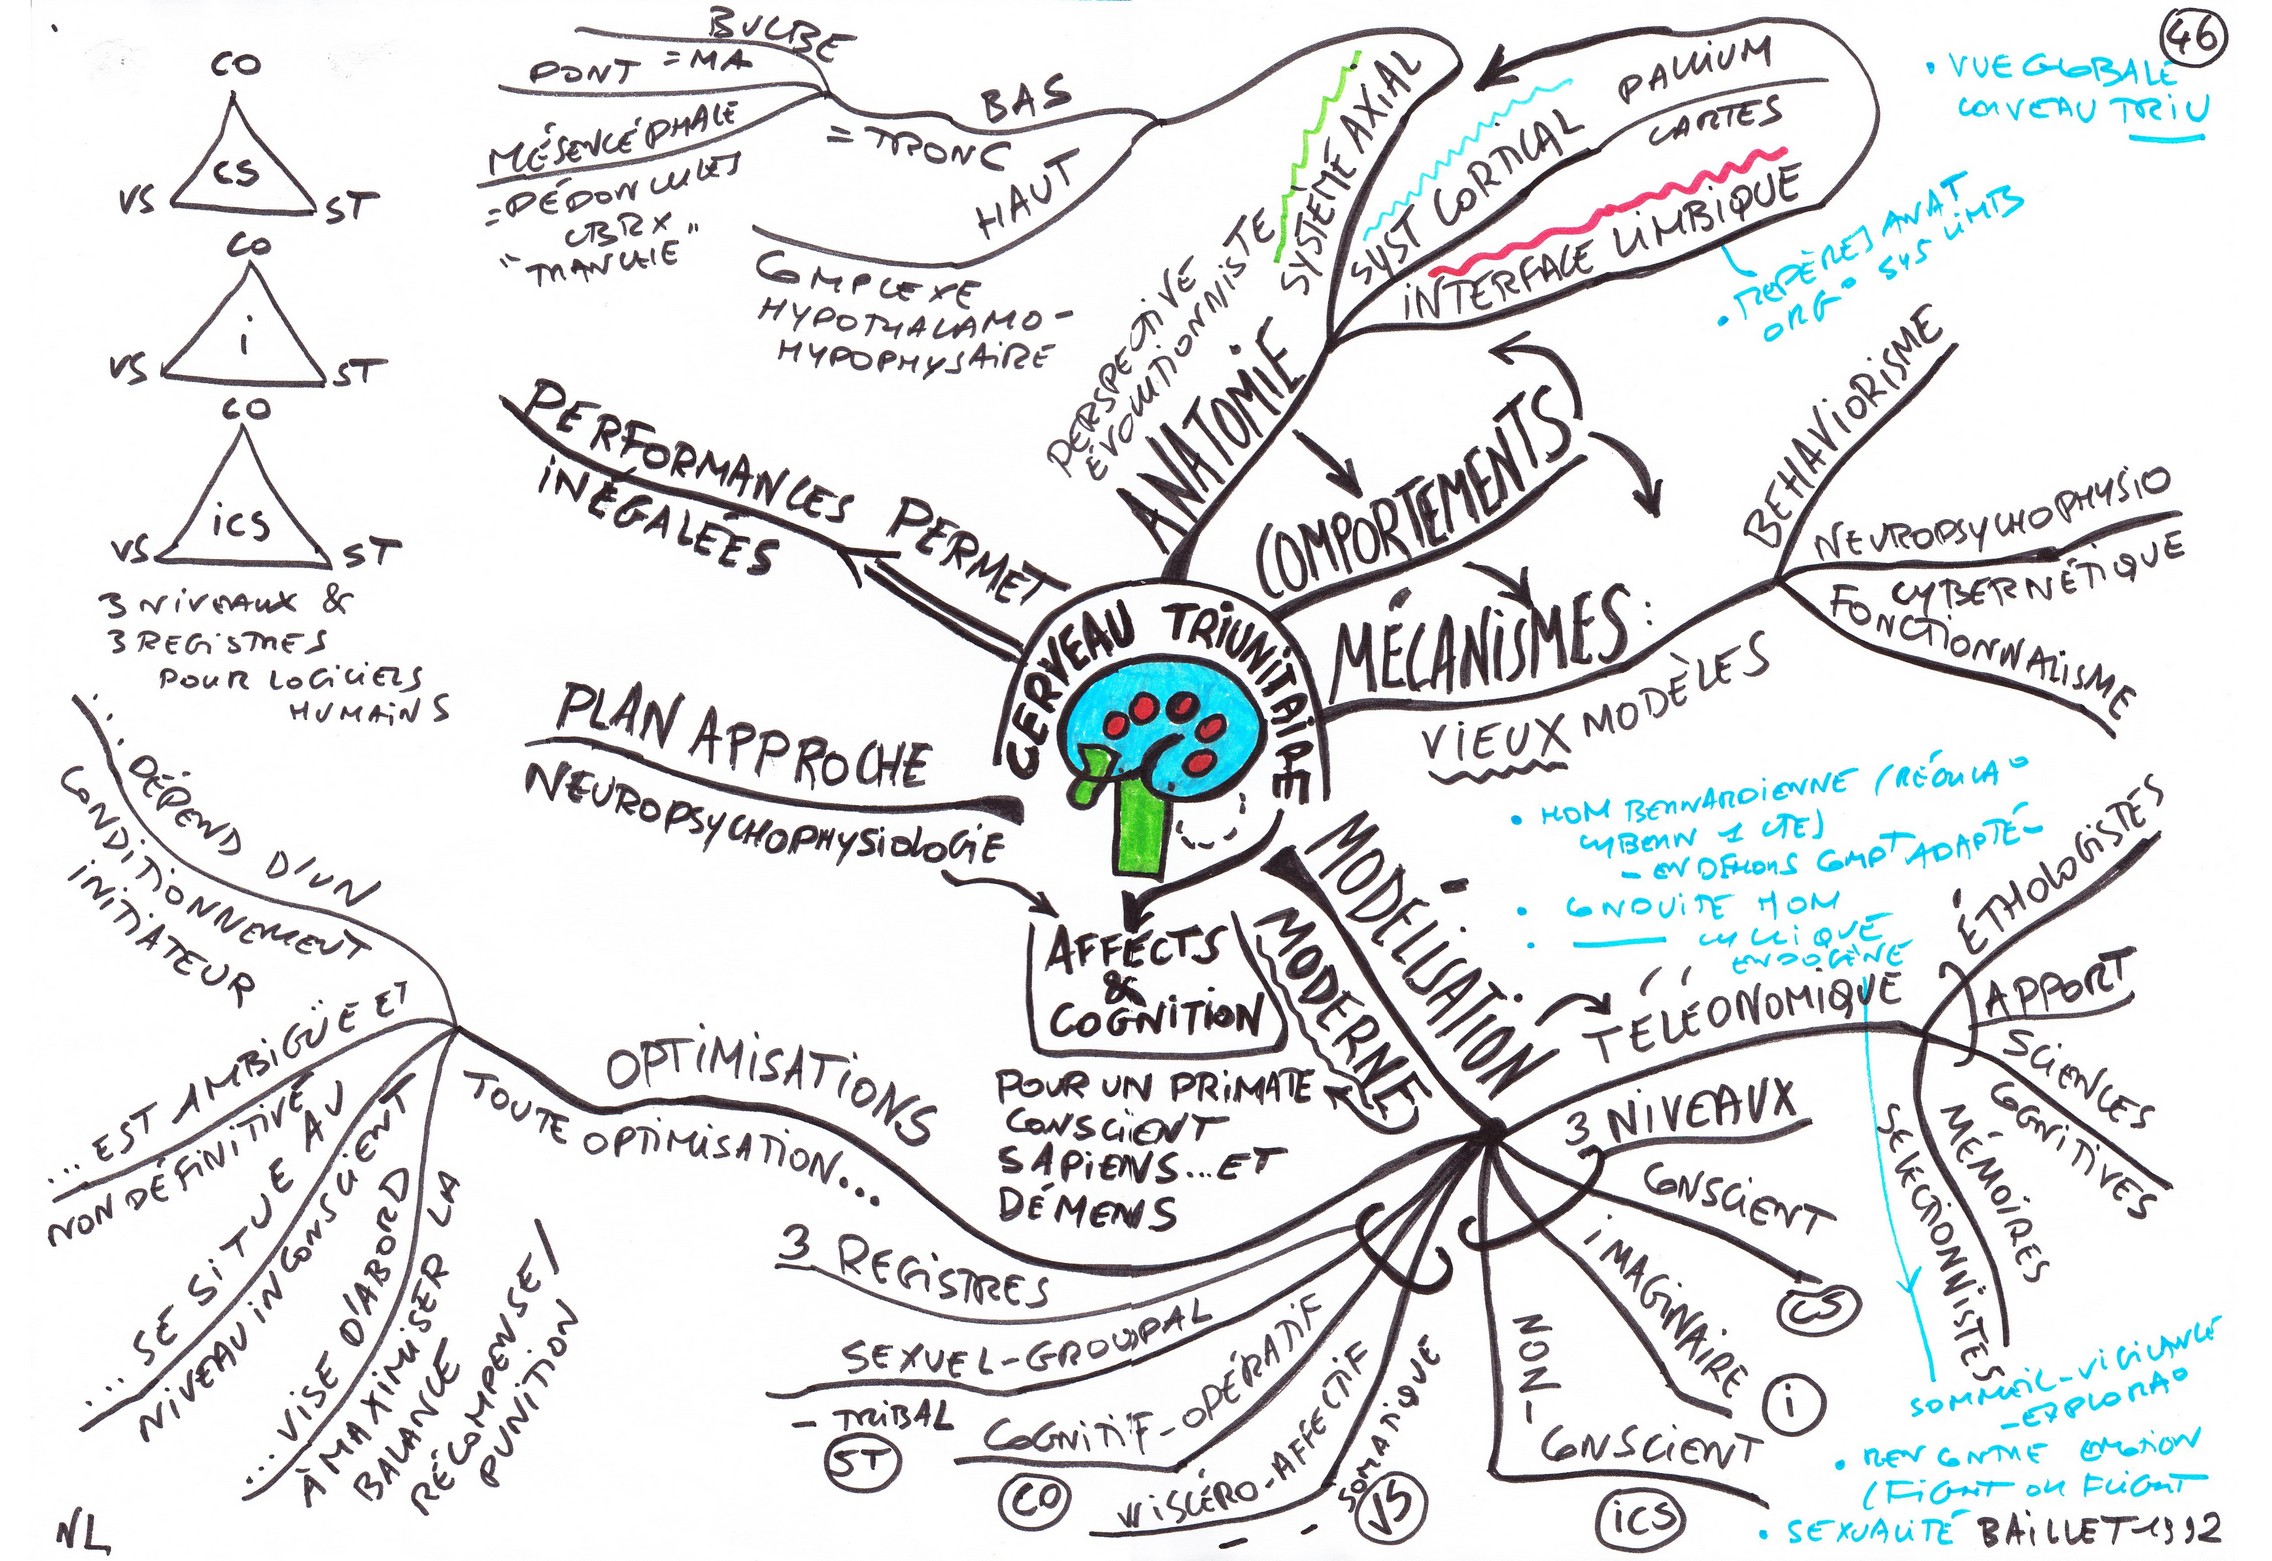 46
• VUE GLOBALE
CERVEAU TRIU
CO
CS
VS
ST
CO
i
VS
ST
CO
iCS
VS
ST
3 NIVEAUX &
3 REGISTRES
POUR LOGICIELS
HUMAINS
BULBE
PONT = MA
MÉSENCÉPHALE
= PÉDONCULES
CBRX
"TRANCHE"
BAS
= TRONC
HAUT
COMPLEXE
HYPOTHALAMO-
HYPOPHYSAIRE
PERSPECTIVE
ÉVOLUTIONNISTE
SYSTÈME AXIAL
SYST CORTICAL
PALLIUM
CARTES
INTERFACE LIMBIQUE
• REPÈRES ANAT
ORG° SYS LIMB
ANATOMIE
COMPORTEMENTS
MÉCANISMES:
VIEUX MODÈLES
BEHAVIORISME
NEUROPSYCHOPHYSIO
CYBERNÉTIQUE
FONCTIONNALISME
PERFORMANCES PERMET
INÉGALÉES
CERVEAU TRIUNITAIRE
PLAN APPROCHE
NEUROPSYCHOPHYSIOLOGIE
AFFECTS
&
COGNITION
POUR UN PRIMATE
CONSCIENT
SAPIENS... ET
DÉMENS
MODÉLISATION
MODERNE
• HOM BERNARDIENNE (RÉGULA°
CYBERN 1 CTE)
- EN DEHORS COMPT ADAPTÉ-
• CONDUITE HOM
• —— CYCLIQUE
ENDOGÈNE
TÉLÉONOMIQUE
ÉTHOLOGISTES
APPORT
SCIENCES
COGNITIVES
MÉMOIRES
SELECTIONNISTES
3 NIVEAUX
CONSCIENT
CS
iMAGINAIRE
i
NON-
CONSCIENT
iCS
3 REGISTRES
SEXUEL-GROUPAL
- TRIBAL
ST
COGNITIF-OPÉRATIF
CO
VISCÉRO-AFFECTIF
- SOMATIQUE
VS
OPTIMISATIONS
TOUTE OPTIMISATION...
... DÉPEND D'UN
CONDITIONNEMENT
INITIATEUR
... EST AMBIGÜE ET
NON DÉFINITIVE
... SE SITUE AU
NIVEAU INCONSCIENT
... VISE D'ABORD
À MAXIMISER LA
BALANCE
RÉCOMPENSE/
PUNITION
SOMMEIL-VIGILANCE
-EXPLORA°
• RENCONTRE EMOTION
(FIGHT OU FLIGHT
• SEXUALITÉ BAILLET 1992
NL